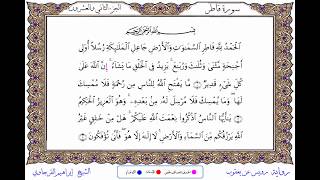 سورة فاطر
الجزء الثاني والعشرون
بسم الله الرحمن الرحيم
الْحَمْدُ لِلَّهِ فَاطِرِ السَّمَاوَاتِ وَالْأَرْضِ جَاعِلِ الْمَلَائِكَةِ رُسُلًا أُولِي
أَجْنِحَةٍ مَثْنَى وَثُلَاثَ وَرُبَاعَ يَزِيدُ فِي الْخَلْقِ مَا يَشَاءُ إِنَّ اللَّهَ عَلَى
كُلِّ شَيْءٍ قَدِيرٌ ۝ مَا يَفْتَحِ اللَّهُ لِلنَّاسِ مِنْ رَحْمَةٍ فَلَا مُمْسِكَ
لَهَا وَمَا يُمْسِكْ فَلَا مُرْسِلَ لَهُ مِنْ بَعْدِهِ وَهُوَ الْعَزِيزُ الْحَكِيمُ
۝ يَا أَيُّهَا النَّاسُ اذْكُرُوا نِعْمَتَ اللَّهِ عَلَيْكُمْ هَلْ مِنْ خَالِقٍ غَيْرُ
اللَّهِ يَرْزُقُكُمْ مِنَ السَّمَاءِ وَالْأَرْضِ لَا إِلَهَ إِلَّا هُوَ فَأَنَّى تُؤْفَكُونَ ۝
رواية رويس عن يعقوب
الشيخ إبراهيم القرجاوي